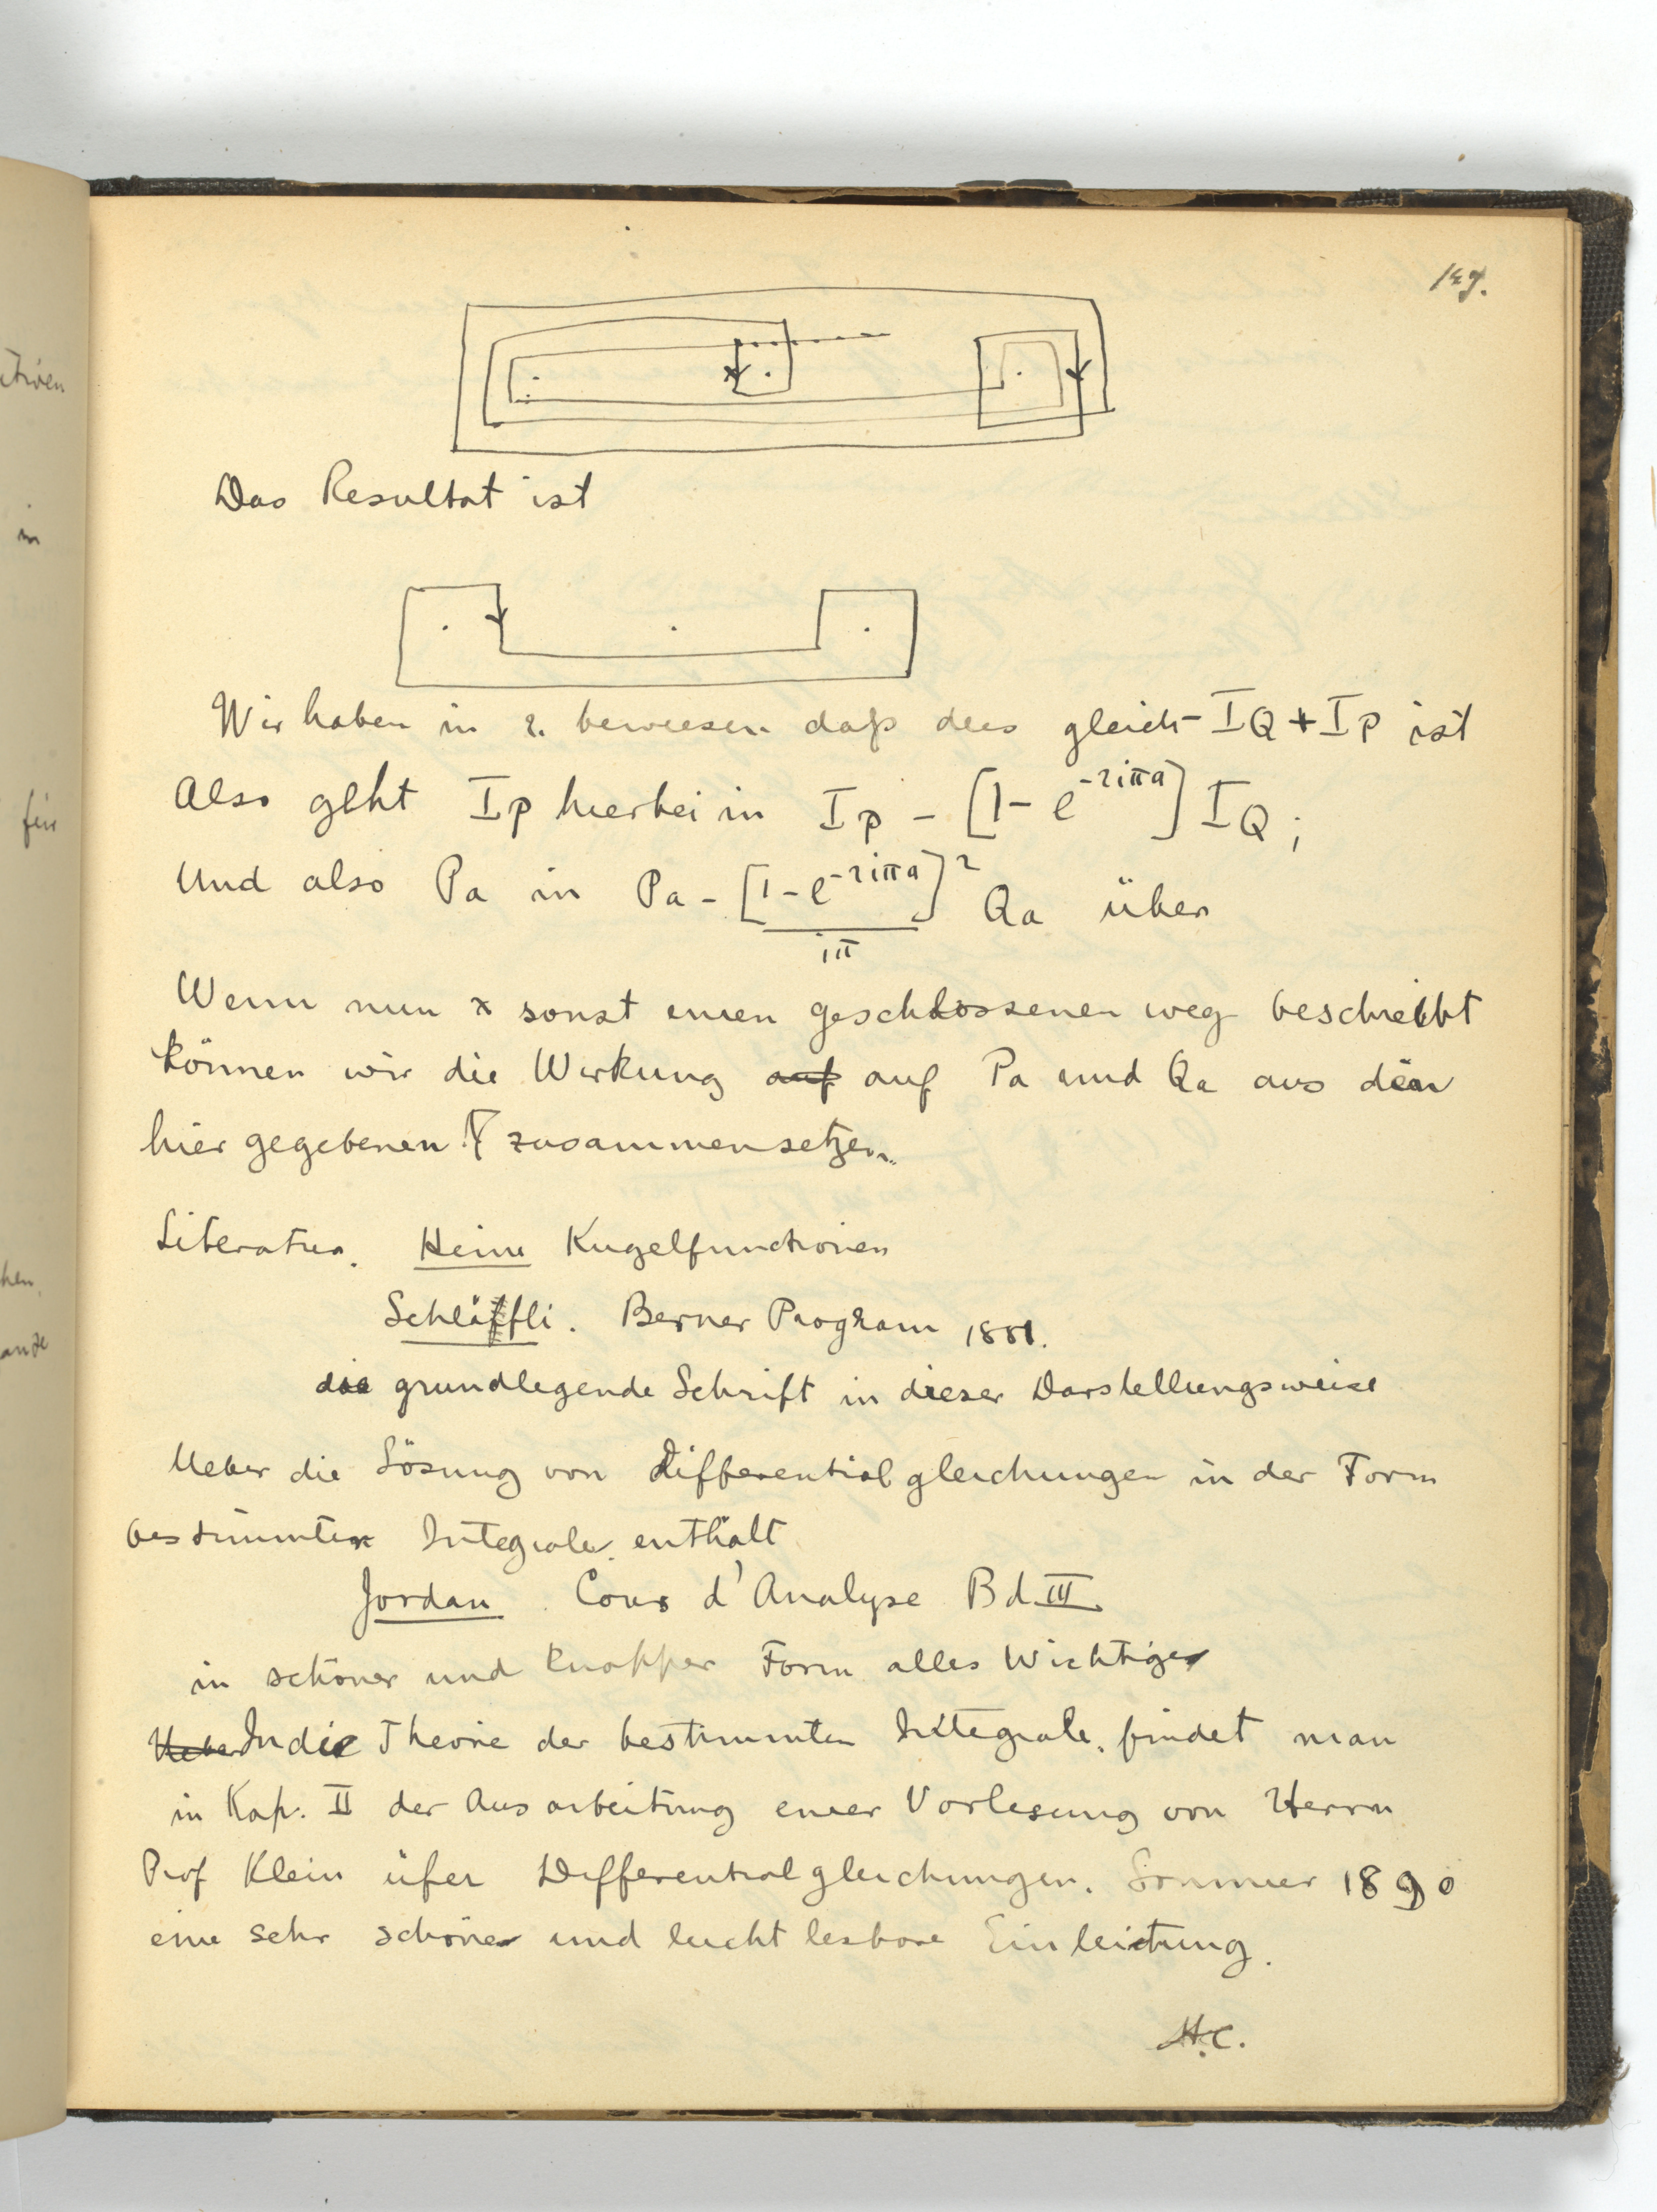 149.
Das Resultat ist
Wir haben in 2. bewiesen daß dies gleich - I_Q + I_P ist
Also geht I_P hierbei in I_P - [1 - e^{-2iπa}] I_Q ;
Und also P_a in P_a - [1 - e^{-2iπa}]^2 / iπ Q_a über
Wenn nun x sonst einen geschlossenen weg beschreibt
können wir die Wirkung auf auf P_a und Q_a aus den
hier gegebenen zusammensetzen.
Literatur. Heine Kugelfunctionen
Schläffli. Berner Program 1881.
die grundlegende Schrift in dieser Darstellungsweise
Ueber die Lösung von Differentialgleichungen in der Form
bestimmter Integrale enthält
Jordan Cours d'Analyse Bd. III.
in schöner und knapper Form alles Wichtige
Ueber In die Theorie der bestimmten Integrale. findet man
in Kap. II der Ausarbeitung einer Vorlesung von Herrn
Prof Klein üfer Differentialgleichungen. Sommer 1890
eine sehr schöne und leicht lesbare Einleitung.
H.C.
in
für